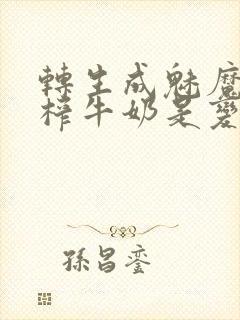 轉生成魅魔
榨牛奶是變
孫昌鑾